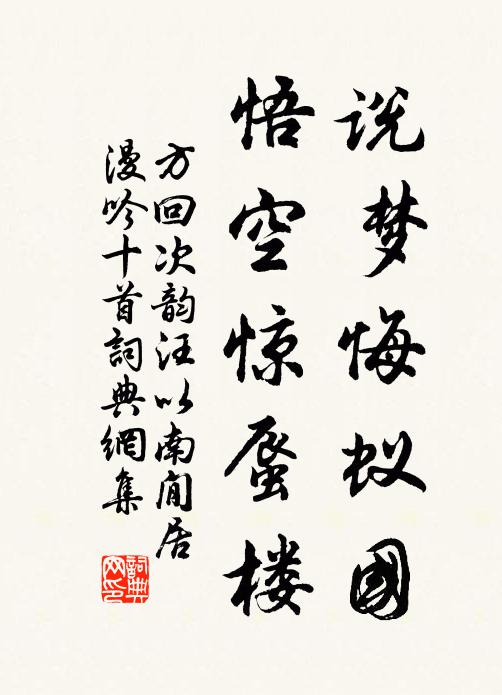 说梦悔蚁国
悟空惊蜃楼
方回次韵汪以南閒居
漫吟十首詞典網集
詞典网印